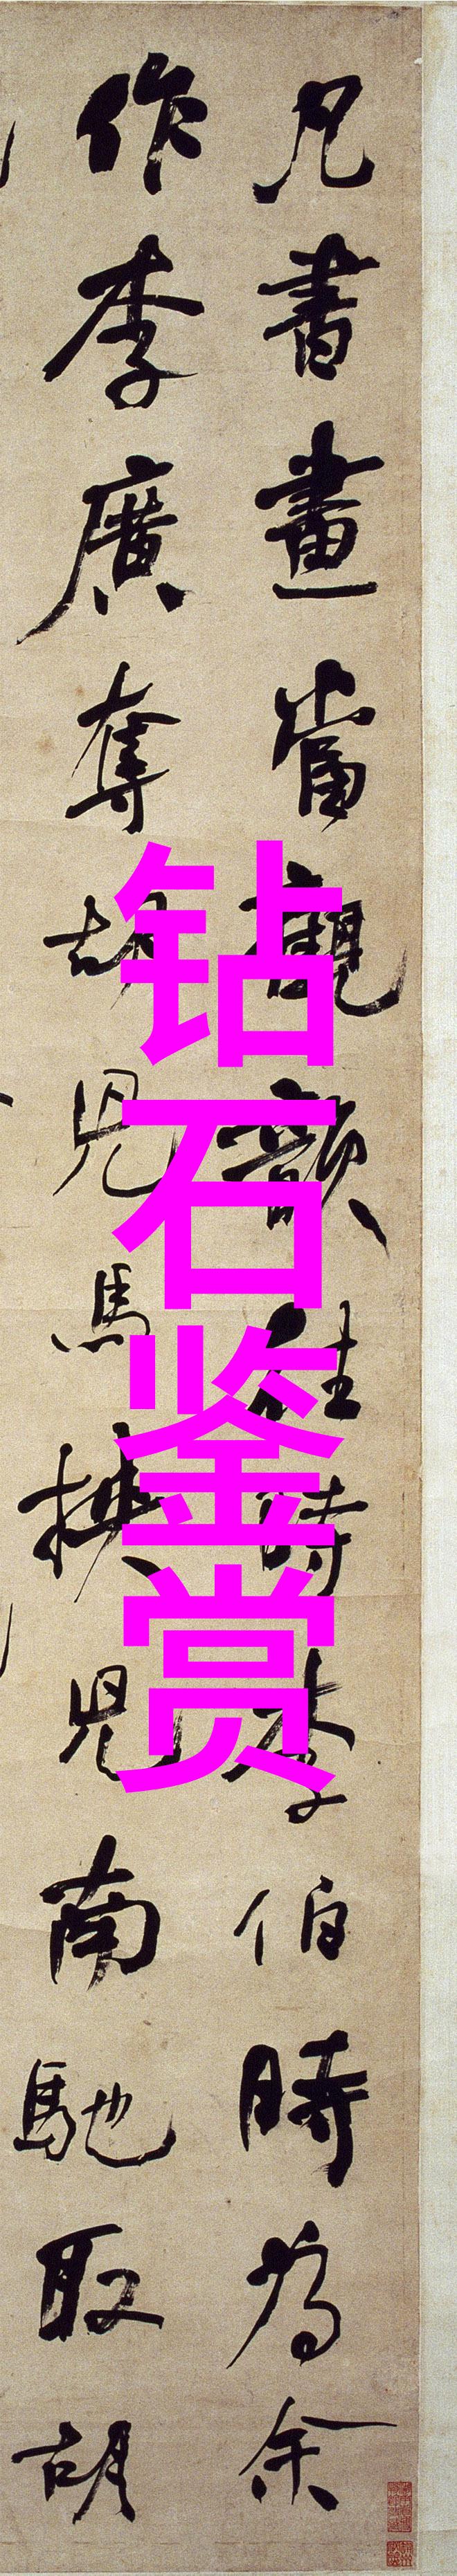 凡書畫當觀韻往時李伯時為余
作李廣奪胡兒馬挾兒南馳取胡
钻石鉴赏